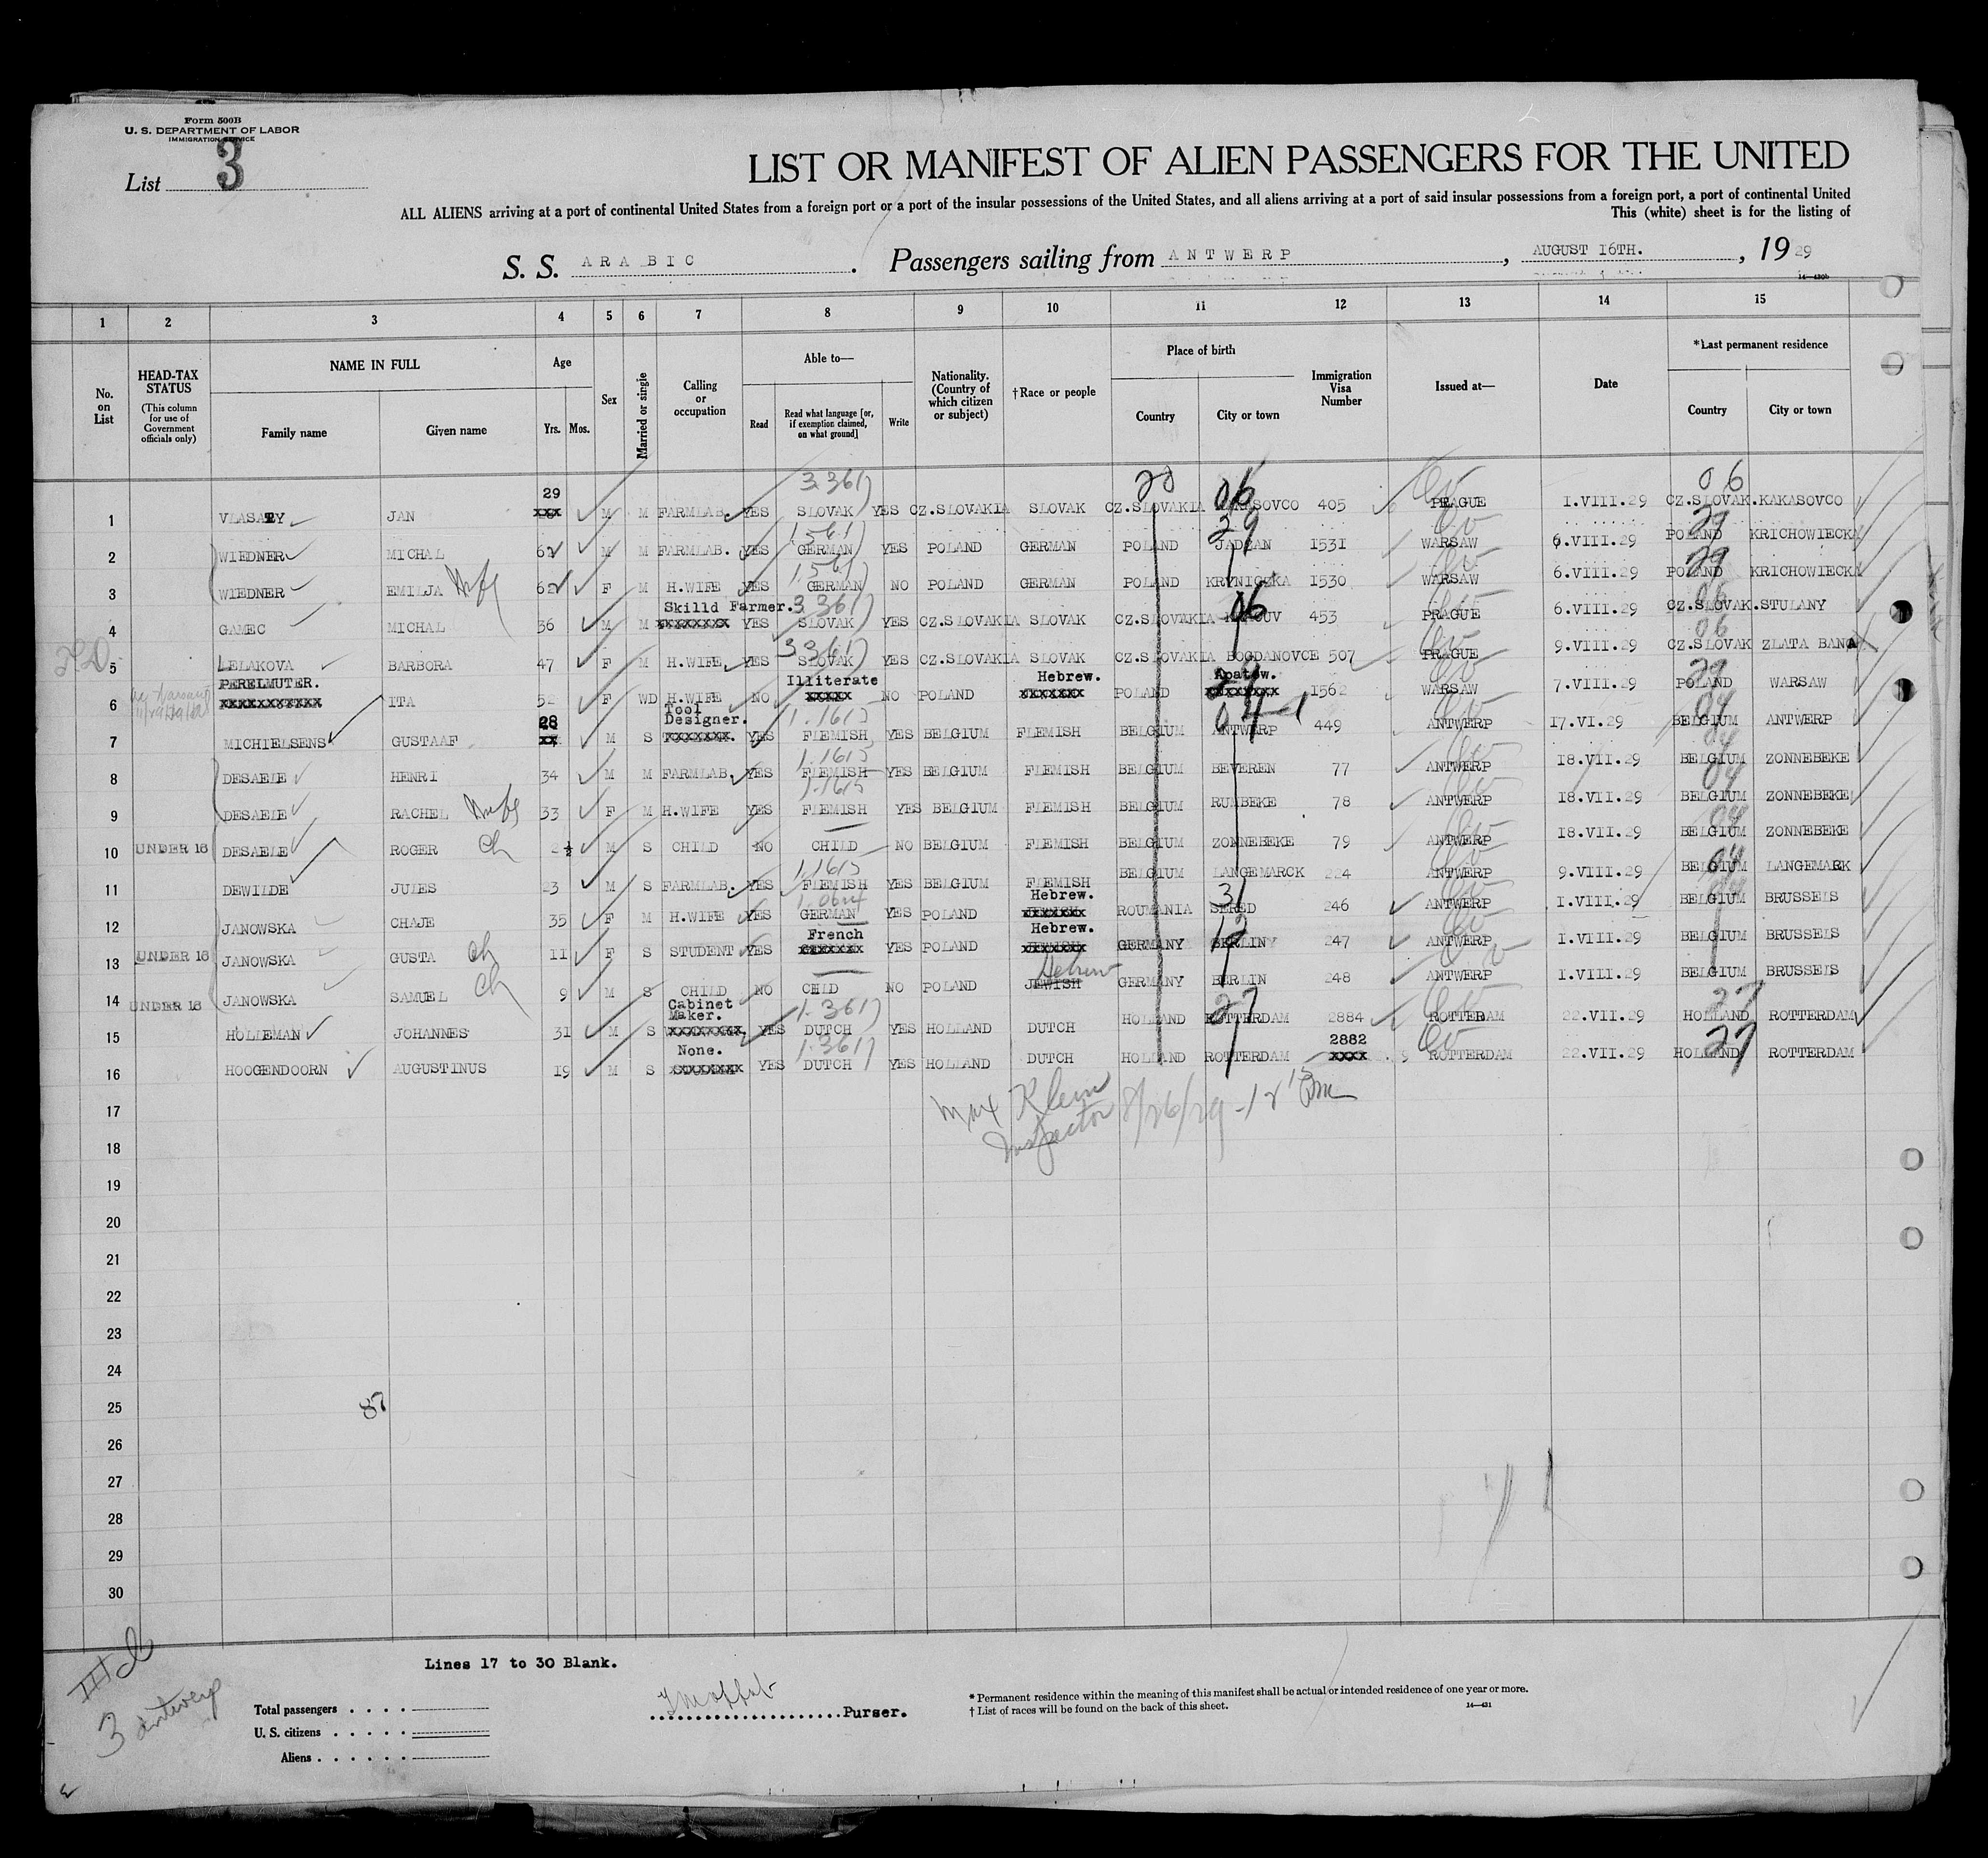 Form 500B
U. S. DEPARTMENT OF LABOR
IMMIGRATION SERVICE
List 3
LIST OR MANIFEST OF ALIEN PASSENGERS FOR THE UNITED
ALL ALIENS arriving at a port of continental United States from a foreign port or a port of the insular possessions of the United States, and all aliens arriving at a port of said insular possessions from a foreign port, a port of continental United
This (white) sheet is for the listing of
S. S. ARABIC. Passengers sailing from ANTWERP, AUGUST 16TH., 1929
14—430b
1 2 3 4 5 6 7 8 9 10 11 12 13 14 15
No. on List
HEAD-TAX STATUS
(This column for use of Government officials only)
NAME IN FULL
Family name Given name
Age
Yrs. Mos.
Sex
Married or single
Calling or occupation
Able to—
Read
Read what language [or, if exemption claimed, on what ground]
Write
Nationality. (Country of which citizen or subject)
†Race or people
Place of birth
Country City or town
Immigration Visa Number
Issued at—
Date
*Last permanent residence
Country City or town
3.3617 20 06 06
29
1 JAN xxx M M FARMLAB. YES SLOVAK YES CZ.SLOVAKIA SLOVAK CZ.SLOVAKIA 405 PRAGUE 1.VIII.29 CZ.SLOVAK. KAKASOVCO
2 WIEDNER MICHAL 62 M M FARMLAB. YES GERMAN YES POLAND GERMAN POLAND 1531 WARSAW 6.VIII.29 POLAND KRICHOWIECKA
3 WIEDNER EMILJA Wife 62 F M H.WIFE YES GERMAN NO POLAND GERMAN POLAND 1530 WARSAW 6.VIII.29 POLAND KRICHOWIECKA
Skilld Farmer. 3.3617 06 06
4 GAMEC MICHAL 36 M M xxxxxxxx YES SLOVAK YES CZ.SLOVAKIA SLOVAK CZ.SLOVAKIA 453 PRAGUE 6.VIII.29 CZ.SLOVAK. STULANY
5 LELAKOVA BARBORA 47 F M H.WIFE YES SLOVAK YES CZ.SLOVAKIA SLOVAK CZ.SLOVAKIA BOGDANOVCE 507 PRAGUE 9.VIII.29 CZ.SLOVAK ZLATA BANQA
PERELMUTER. Illiterate Hebrew. Apatow.
6 xxxxxxxxxxx ITA F WD H.WIFE NO xxxxx NO POLAND xxxxxxx POLAND xxxxxxxx 1562 WARSAW 7.VIII.29 POLAND WARSAW
28 Tool Designer. 1.1615
7 MICHIELSENS GUSTAAF xx M S xxxxxxx. YES FLEMISH YES BELGIUM FLEMISH BELGIUM ANTWERP 449 ANTWERP 17.VI.29 BELGIUM ANTWERP
1.1615
8 DESAELE HENRI 34 M M FARMLAB. YES FLEMISH YES BELGIUM FLEMISH BELGIUM BEVEREN 77 ANTWERP 18.VII.29 BELGIUM ZONNEBEKE
1.1615
9 DESAELE RACHEL Wife 33 F M H.WIFE YES FLEMISH YES BELGIUM FLEMISH BELGIUM RUMBEKE 78 ANTWERP 18.VII.29 BELGIUM ZONNEBEKE
10 UNDER 16 DESAELE ROGER Ch 2½ M S CHILD NO CHILD NO BELGIUM FLEMISH BELGIUM ZONNEBEKE 79 ANTWERP 18.VII.29 BELGIUM ZONNEBEKE
1.1615
11 DEWILDE JULES 23 M S FARMLAB. YES FLEMISH YES BELGIUM FLEMISH BELGIUM LANGEMARCK 224 ANTWERP 9.VIII.29 BELGIUM LANGEMARK
Hebrew. 31
12 JANOWSKA CHAJE 35 F M H.WIFE YES GERMAN YES POLAND xxxxxxx ROUMANIA SERED 246 ANTWERP 1.VIII.29 BELGIUM BRUSSELS
French Hebrew.
13 UNDER 16 JANOWSKA GUSTA Ch 11 F S STUDENT YES xxxxxxx YES POLAND xxxxxxx GERMANY BERLIN 247 ANTWERP 1.VIII.29 BELGIUM BRUSSELS
Hebrew
14 UNDER 16 JANOWSKA SAMUEL Ch 9 M S CHILD NO CHILD NO POLAND JEWISH GERMANY BERLIN 248 ANTWERP 1.VIII.29 BELGIUM BRUSSELS
Cabinet Maker. 1.3617 27 27
15 HOLLEMAN JOHANNES 31 M S xxxxxxxx YES DUTCH YES HOLLAND DUTCH HOLLAND ROTTERDAM 2884 ROTTERDAM 22.VII.29 HOLLAND ROTTERDAM
None. 1.3617 2882 27
16 HOOGENDOORN AUGUSTINUS 19 M S xxxxxxxx YES DUTCH YES HOLLAND DUTCH HOLLAND ROTTERDAM xxxx ROTTERDAM 22.VII.29 HOLLAND ROTTERDAM
17
Max Klein 8/26/29 - 12 15 Pm
Inspector
18
19
20
21
22
23
24
25
87
26
27
28
29
30
Lines 17 to 30 Blank.
3 Antwerp
Total passengers
U. S. citizens
Aliens
Purser.
* Permanent residence within the meaning of this manifest shall be actual or intended residence of one year or more.
† List of races will be found on the back of this sheet.
14—431